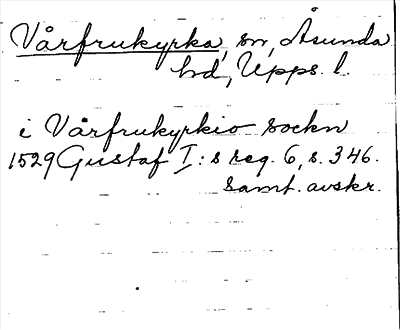 Vårfrukyrka, sn, Åsunda
hd, Upps. l.
i Vårfrukyrkio sockn
1529 Gustaf I:s reg. 6, s. 346.
samt. avskr.